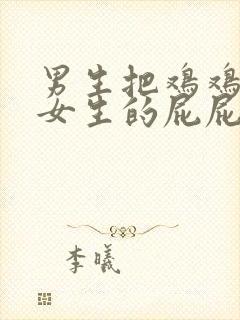 男生把鸡鸡
女生的屁屁
李曦